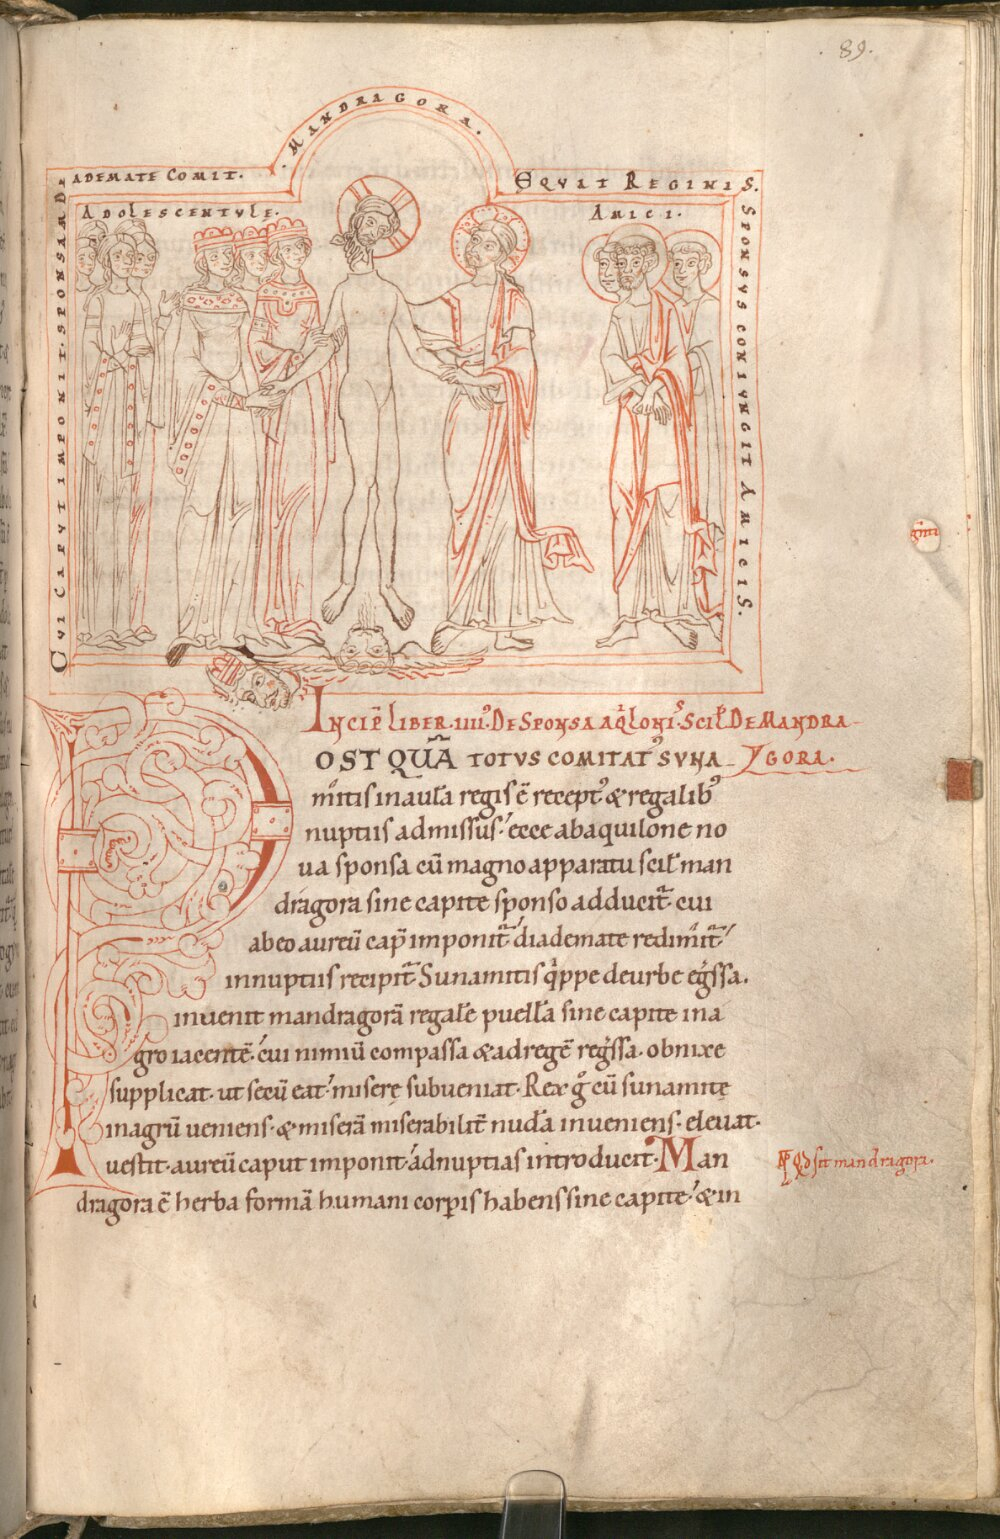 89.
MANDRAGORA.
ADEMATE COMIT.
EQVAT REGINIS.
ADOLESCENTVLE.
AMICI.
CVI CAPVT IMPONIT. SPONSAM DI
SPONSVS CONIVNGIT AMICIS.
INCIP̅ LIBER. IIII. DE SPONSA AQͥLONIS. SCIL̅ DE MANDRA
POST QVA̅ TOTVS COMITATꝰ SVNA YGORA.
mitis in aula regis ē recept᷒ & regalib᷒
nuptiis admissus. ecce ab aquilone no
ua sponsa cū magno apparatu scil̅ man
dragora sine capite sponso adducit̅. cui
ab eo aureū cap̅ imponit̅. diademate redimit̅.
in nuptiis recipit̅. Sunamitis qͥppe de urbe eg̅ssa.
inuenit mandragorā regalē puellā sine capite in a
gro iacentē. cui nimiū compassa & ad regē reg̅ssa. obnixe
supplicat. ut secū eat. miserę subueniat. Rex g̊ cū sunamitę
in agrū ueniens. & miserā miserabilit̅ nudā inueniens. eleuat.
uestit. aureū caput imponit. ad nuptias introducit. Man
dragora ē herba formā humani corꝑis habens sine capite. & in
Qd̅ sit mandragora.